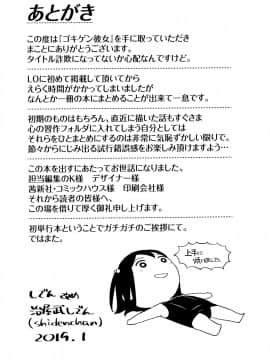 あとがき
この度は「ゴキゲン彼女」を手に取っていただき
まことにありがとうございます。
タイトル詐欺になってないか心配なんですけど。
LOに初めて掲載して頂いてから
えらく時間がかかってしまいましたが
なんとか一冊の本にまとめることが出来て一息です。
初期のものはもちろん、直近に描いた話もすぐさま
心の習作フォルダに入れてしまう自分としては
それらをひとまとめにするのは非常に気恥ずかしい限りで。
節々からにじみ出る試行錯誤感をお楽しみ頂けますよう…
この本を出すにあたってお世話になりました。
担当編集のK様　デザイナー様
茜新社・コミックハウス様　印刷会社様
それから読者の皆様へ、
この場を借りて厚く御礼申し上げます。
初単行本ということでガチガチのご挨拶にて。
ではまた。
上手に
焼けました
しでん 改め
しでん
(shidenchan)
2019.1